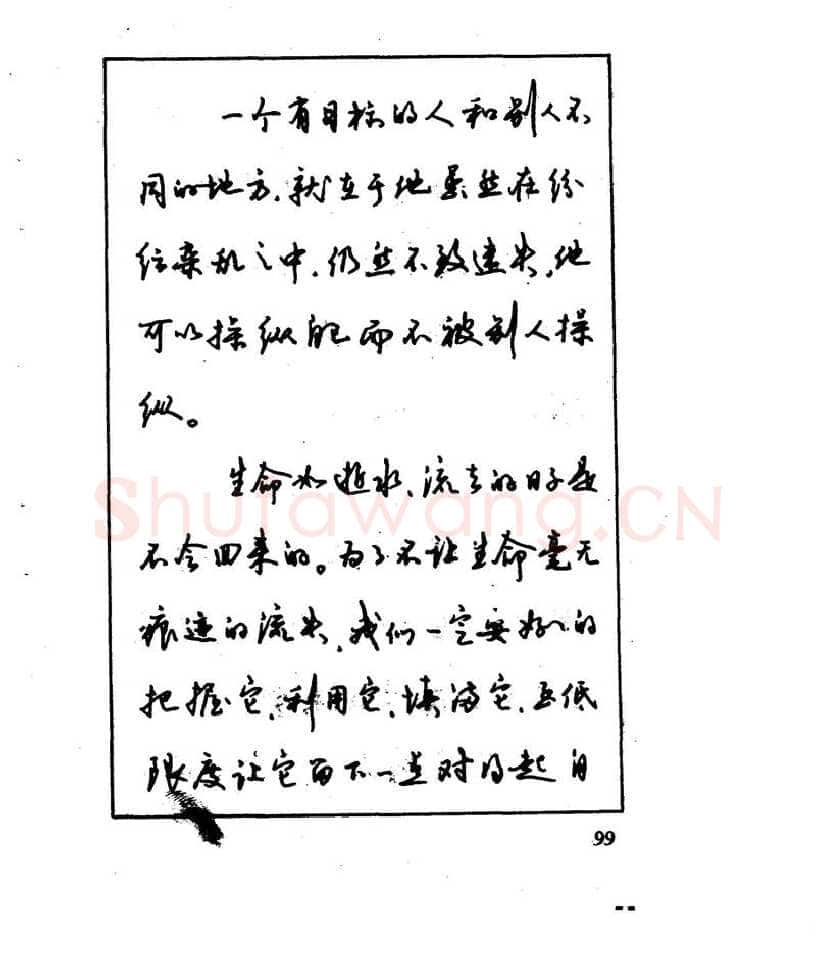 一个有目标的人和别人不
同的地方,就在于他虽然在纷
纭杂乱之中,仍然不致迷失,他
可以操纵自己而不被别人操
纵。
生命如逝水,流去的日子是
不会回来的。为了不让生命毫无
痕迹的流失,我们一定要好好的
把握它,利用它,填满它,至低
限度让它留下一点对得起自
Shufawang.CN
99